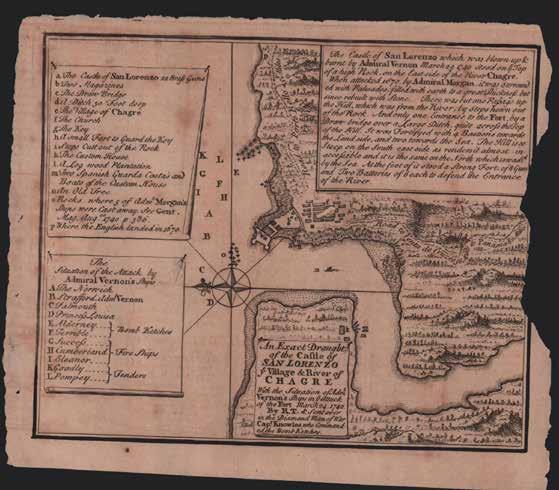 a The Castle of San Lorenzo 22 Brass Guns
b Two Magazines
c The Draw Bridge
d A Ditch 30 Foot deep
e The Village of Chagre
f The Church
g The Key
h A small Fort to Guard the Key
i Steps Cutt out of the Rock
k The Custom House
l A Log wood Plantation
m Two Spanish Guarda Costa's and
Boats of the Custom House
n An Old Tree
o Rocks where 5 of Adml Morgan's
Ships were Cast away. See Gent.
Mag. Augst 1740 p 386.
p Where the English landed in 1670.
The Castle of San Lorenzo which was blown up &
burnt by Admiral Vernon March 24 1740 stood on ye Top
of a high Rock, on the East side of the River Chagre.
When attacked 1670 by Admiral Morgan, it was surround
ed with Palisados, filled with earth
been rebuilt with Stone. There was but one Passage up
the Hill, which was from the River, by steps hewn out
of the Rock. And only one Entrance to the Fort, by a
Draw bridge over a Large Ditch, quite across the Top
of the Hill. It was Fortifyed with 4 Bastions towards
the Land side, and two towards the Sea. The Hill is so
Steep on the South east side as renders it almost in
accessible and it is the same on the North which is wash'd
by the Sea. At the foot of it stood a Strong Fort of 8 Guns
and Two Batteries of 6 each to defend the Entrance
of the River.
The
Situation of the Attack by
Admiral Vernon's Ships
A The Norwich
B Strafford Adml Vernon
C Falmouth
D Princess Louisa
E Alderney
F Terrible
Bomb Ketches
G Success
H Cumberland
Fire Ships
I Eleanor
K Goodly
L Pompey
Tenders
K
G
I
A
B
C
D
L
F
H
E
An Exact Draught
of the Castle of
SAN LORENZO
& ye Village & River of
CHAGRE
With the Situation of Adml
Vernon's Ships in ye Attack
of the Fort March 24 1740
By R.T.
in the Diamond Man of War
Capt Knowles who Command
ed the Bomb Ketches.